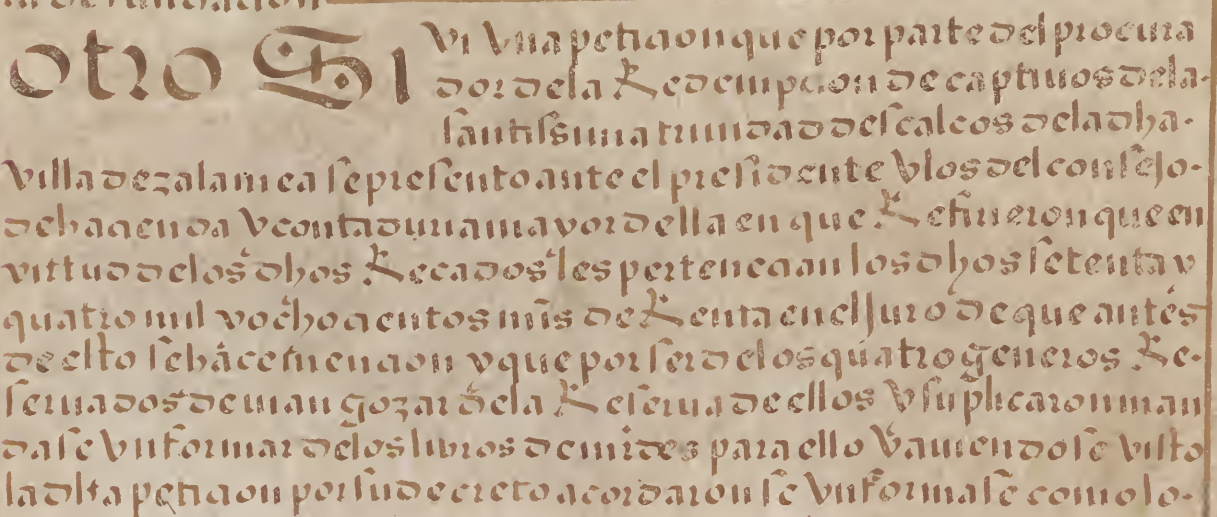 otro Si vi Vna peticion que por parte del procura
dor de la Redempcion de captiuos de la
santissima trinidad descalcos de la dha
Villa de zalamea se presento ante el presidente Vlos del consejo
de hacienda Vcontaduria mayor della en que Refirieron que en
virtud de los dhos Recados les pertenecian los dhos setenta y
quatro mil yochocientos mrs de Renta en el Juro de que antes
de esto se hace mencion yque por ser de los quatro generos Re
seruados deuian gozar de la Reserua de ellos Vsuplicaron man
dase Vnformar de los libros de mrdes para ello Vauiendose Visto
la dha peticion por su decreto acordaron se Vnformase como lo